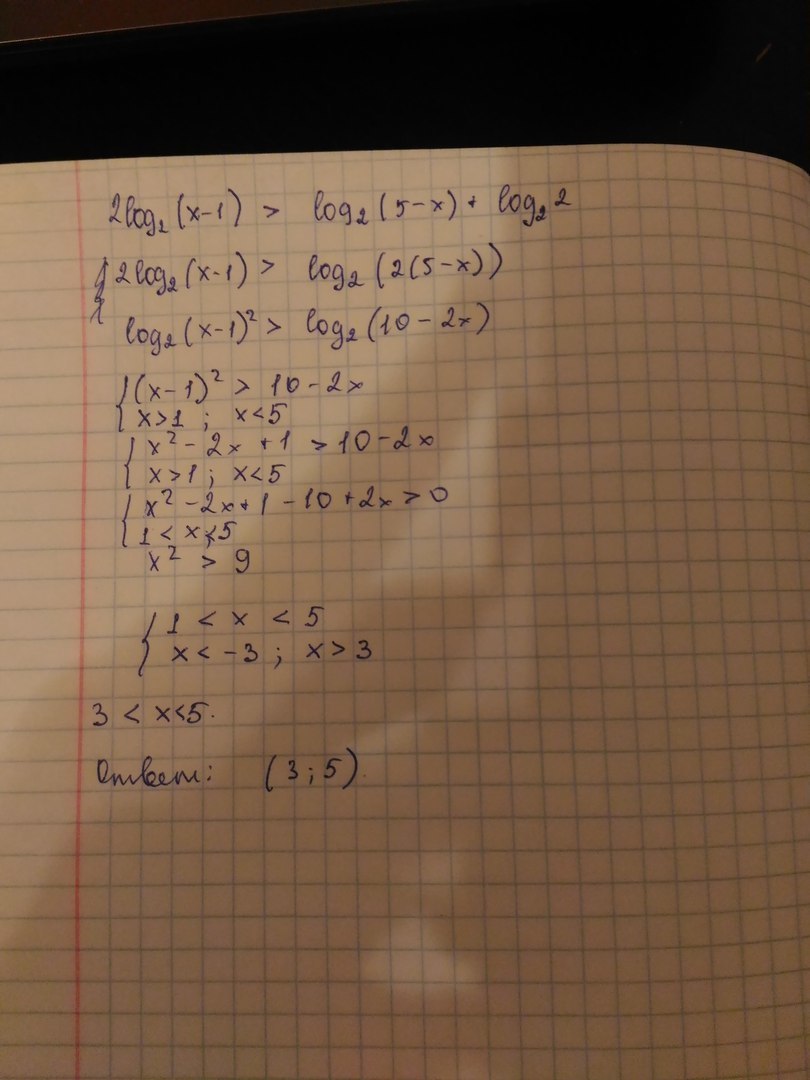 2log₂(x-1) > log₂(5-x) + log₂2
{2log₂(x-1) > log₂(2(5-x))
log₂(x-1)² > log₂(10-2x)
{(x-1)² > 10-2x
x>1 ; x<5
{x² - 2x + 1 > 10-2x
x>1 ; x<5
{x² - 2x + 1 - 10 + 2x > 0
1 < x < 5
x² > 9
{1 < x < 5
x < -3 ; x > 3
3 < x < 5.
Ответ: (3 ; 5).